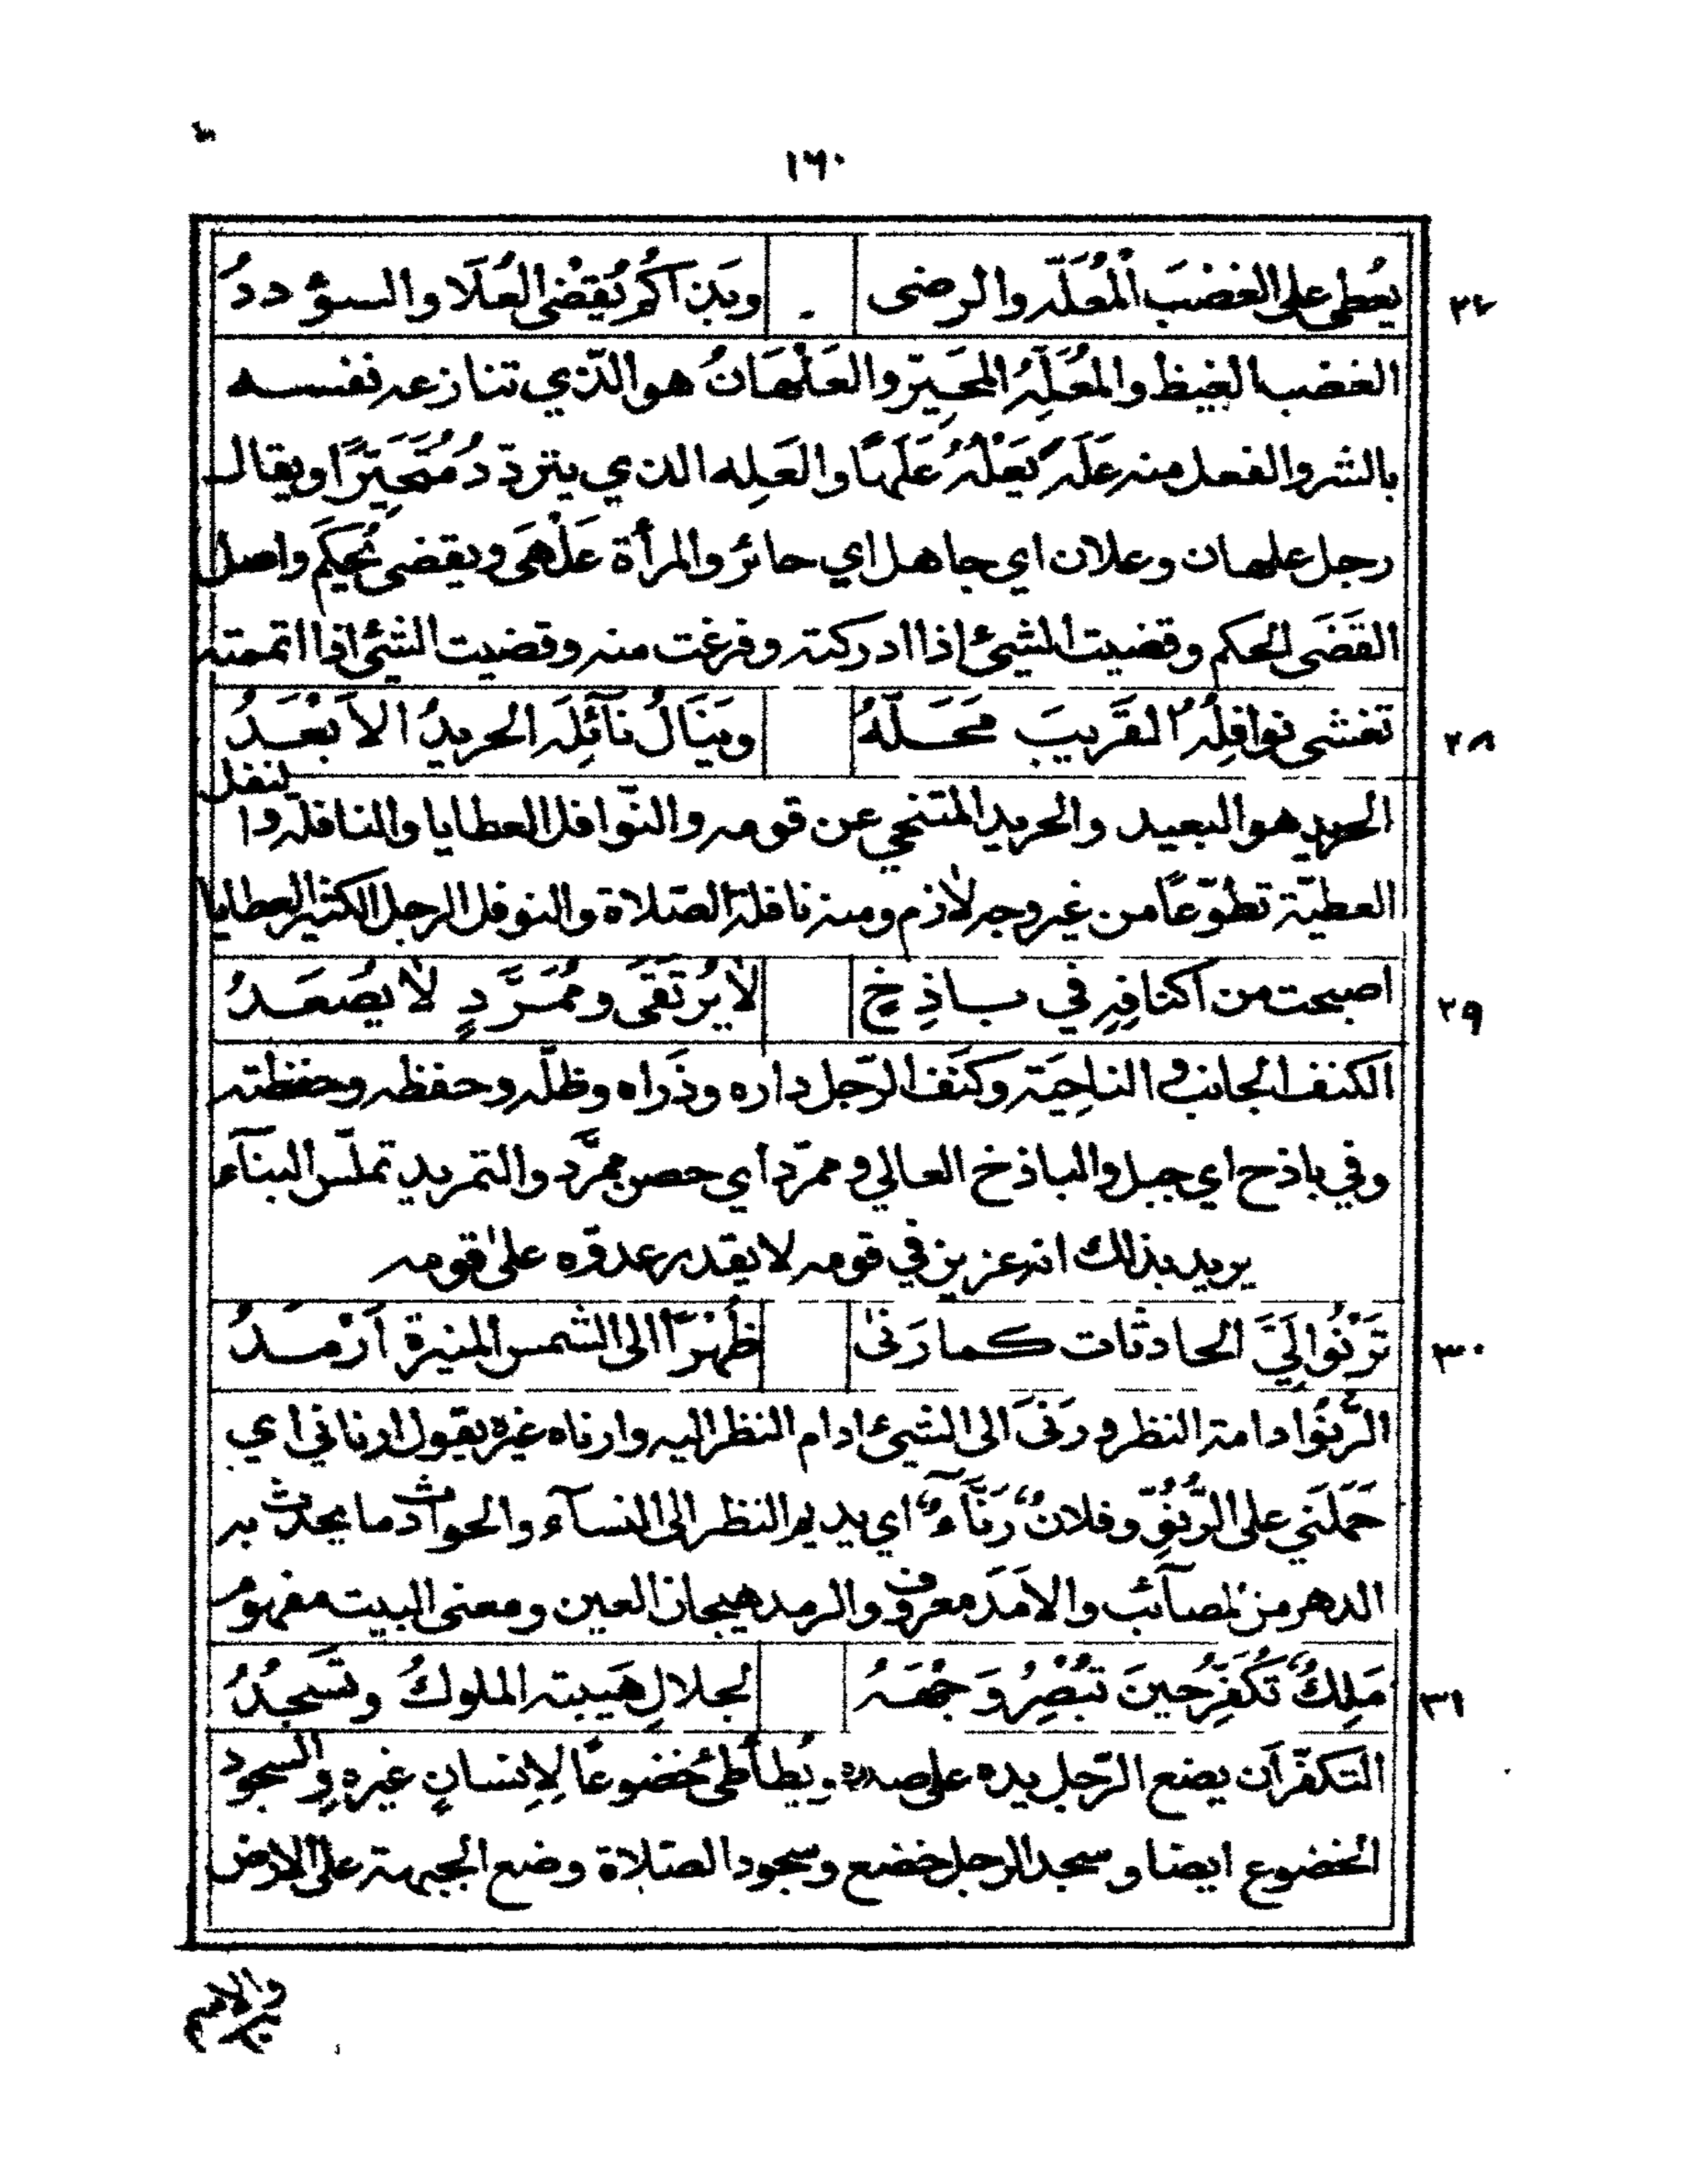 ١٦٠
يعُطي على الغضبَ الْمُعَلّه والرضى . وبَين اكُم يُقضْى العُلَا والسؤددُ ٢٧
الغضب الغيظ والمُعَلِّهُ المحَيِّر والعَلْهَانُ هو الذّي تنازعه نفسه
بالشر والفعل منه عَلَهَ يَعْلُهُ عَلَهًا والعَلِه الذي يتردّدُ مُتَحَيِّرًا ويقال
رجل علهان وعلان اي جاهل اي حائر والمرأة عَلْهَى ويقضى يُحكَم واصل
القَضَى الحكم وقضيت الشيئ اذا ادركته وفرغت منه وقضيت الشئ اذا اتممته
تغشى نوافِلُهُ القَريبَ مَحَلّهُ وَينَالُ نَآئِلَه الحريدُ الاَبْعَدُ ٢٨
الحريد هو البعيد والحريد المتنحي عن قومه والنّوافل العطايا والنافله والنفل
العطيّة تطوّعاً من غير وجه لازم ومنه نافلة الصّلاة والنوفل الرجل الكثير العطايا
اصبحت من اكنافِهِ في بــاذِخٍ لا يُرتَقَى ومُمَرَّدٍ لا يُصَعَدُ ٢٩
الكنف الجانب و الناحِيَة وكَنَف الرّجل داره وذَراه وظلّه وحفظه وحفظته
وفي باذخ اي جبل والباذخ العالي و ممرّد أي حصن ممرَّد والتمريد تملّس البنآء
يريد بذلك انه عزيز في قومه لا يقدر عدوّه على قومه
تَرْنُوا لِيَّ الحادثات كما رَنىٰ ظُهْرًا الى الشمس المنيرة أرْمـدُ ٣٠
الرُّنُوا دامة النظر و رَنَىَ الى الشيئ ادام النظر اليه وارناه غيره يقول ارناني اي
حَمَلَني على الرّنُوِّ وفلانٌ رَنَّآءٌ اي يديم النظر الى النسآء والحوادث ما يحدث به
الدهر من المصآئب والامَدَ معروف والرمد هيجان العين ومعنى البيت مفهوم
مَلِكٌ تكَفِّرُ حينَ تُبْصِرُ وَجْهَهُ لجلالِ هَيبته الملوكُ وتَسجُدُ ٣١
التكفّر آن يضع الرّجل يده على صدره ويُطأطئ خضوعًا لِإنسانٍ غيره والسجود
الخضوع ايضا وسجد الرجل خضع وسجود الصّلاة وضع الجبهة على الارض